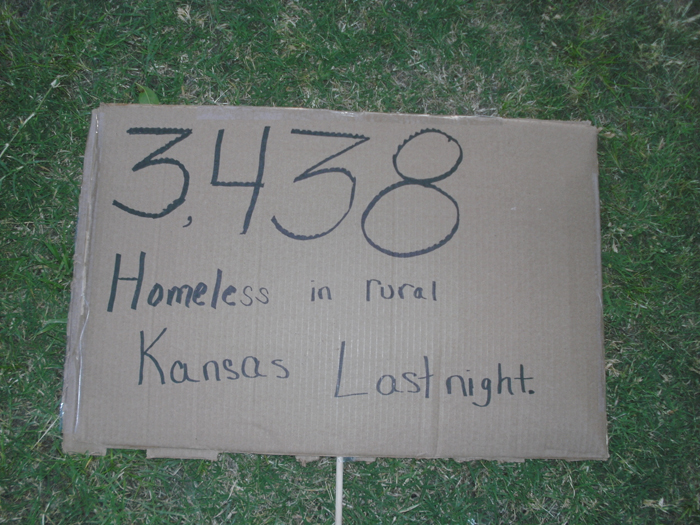 3,438
Homeless in rural
Kansas Last night.